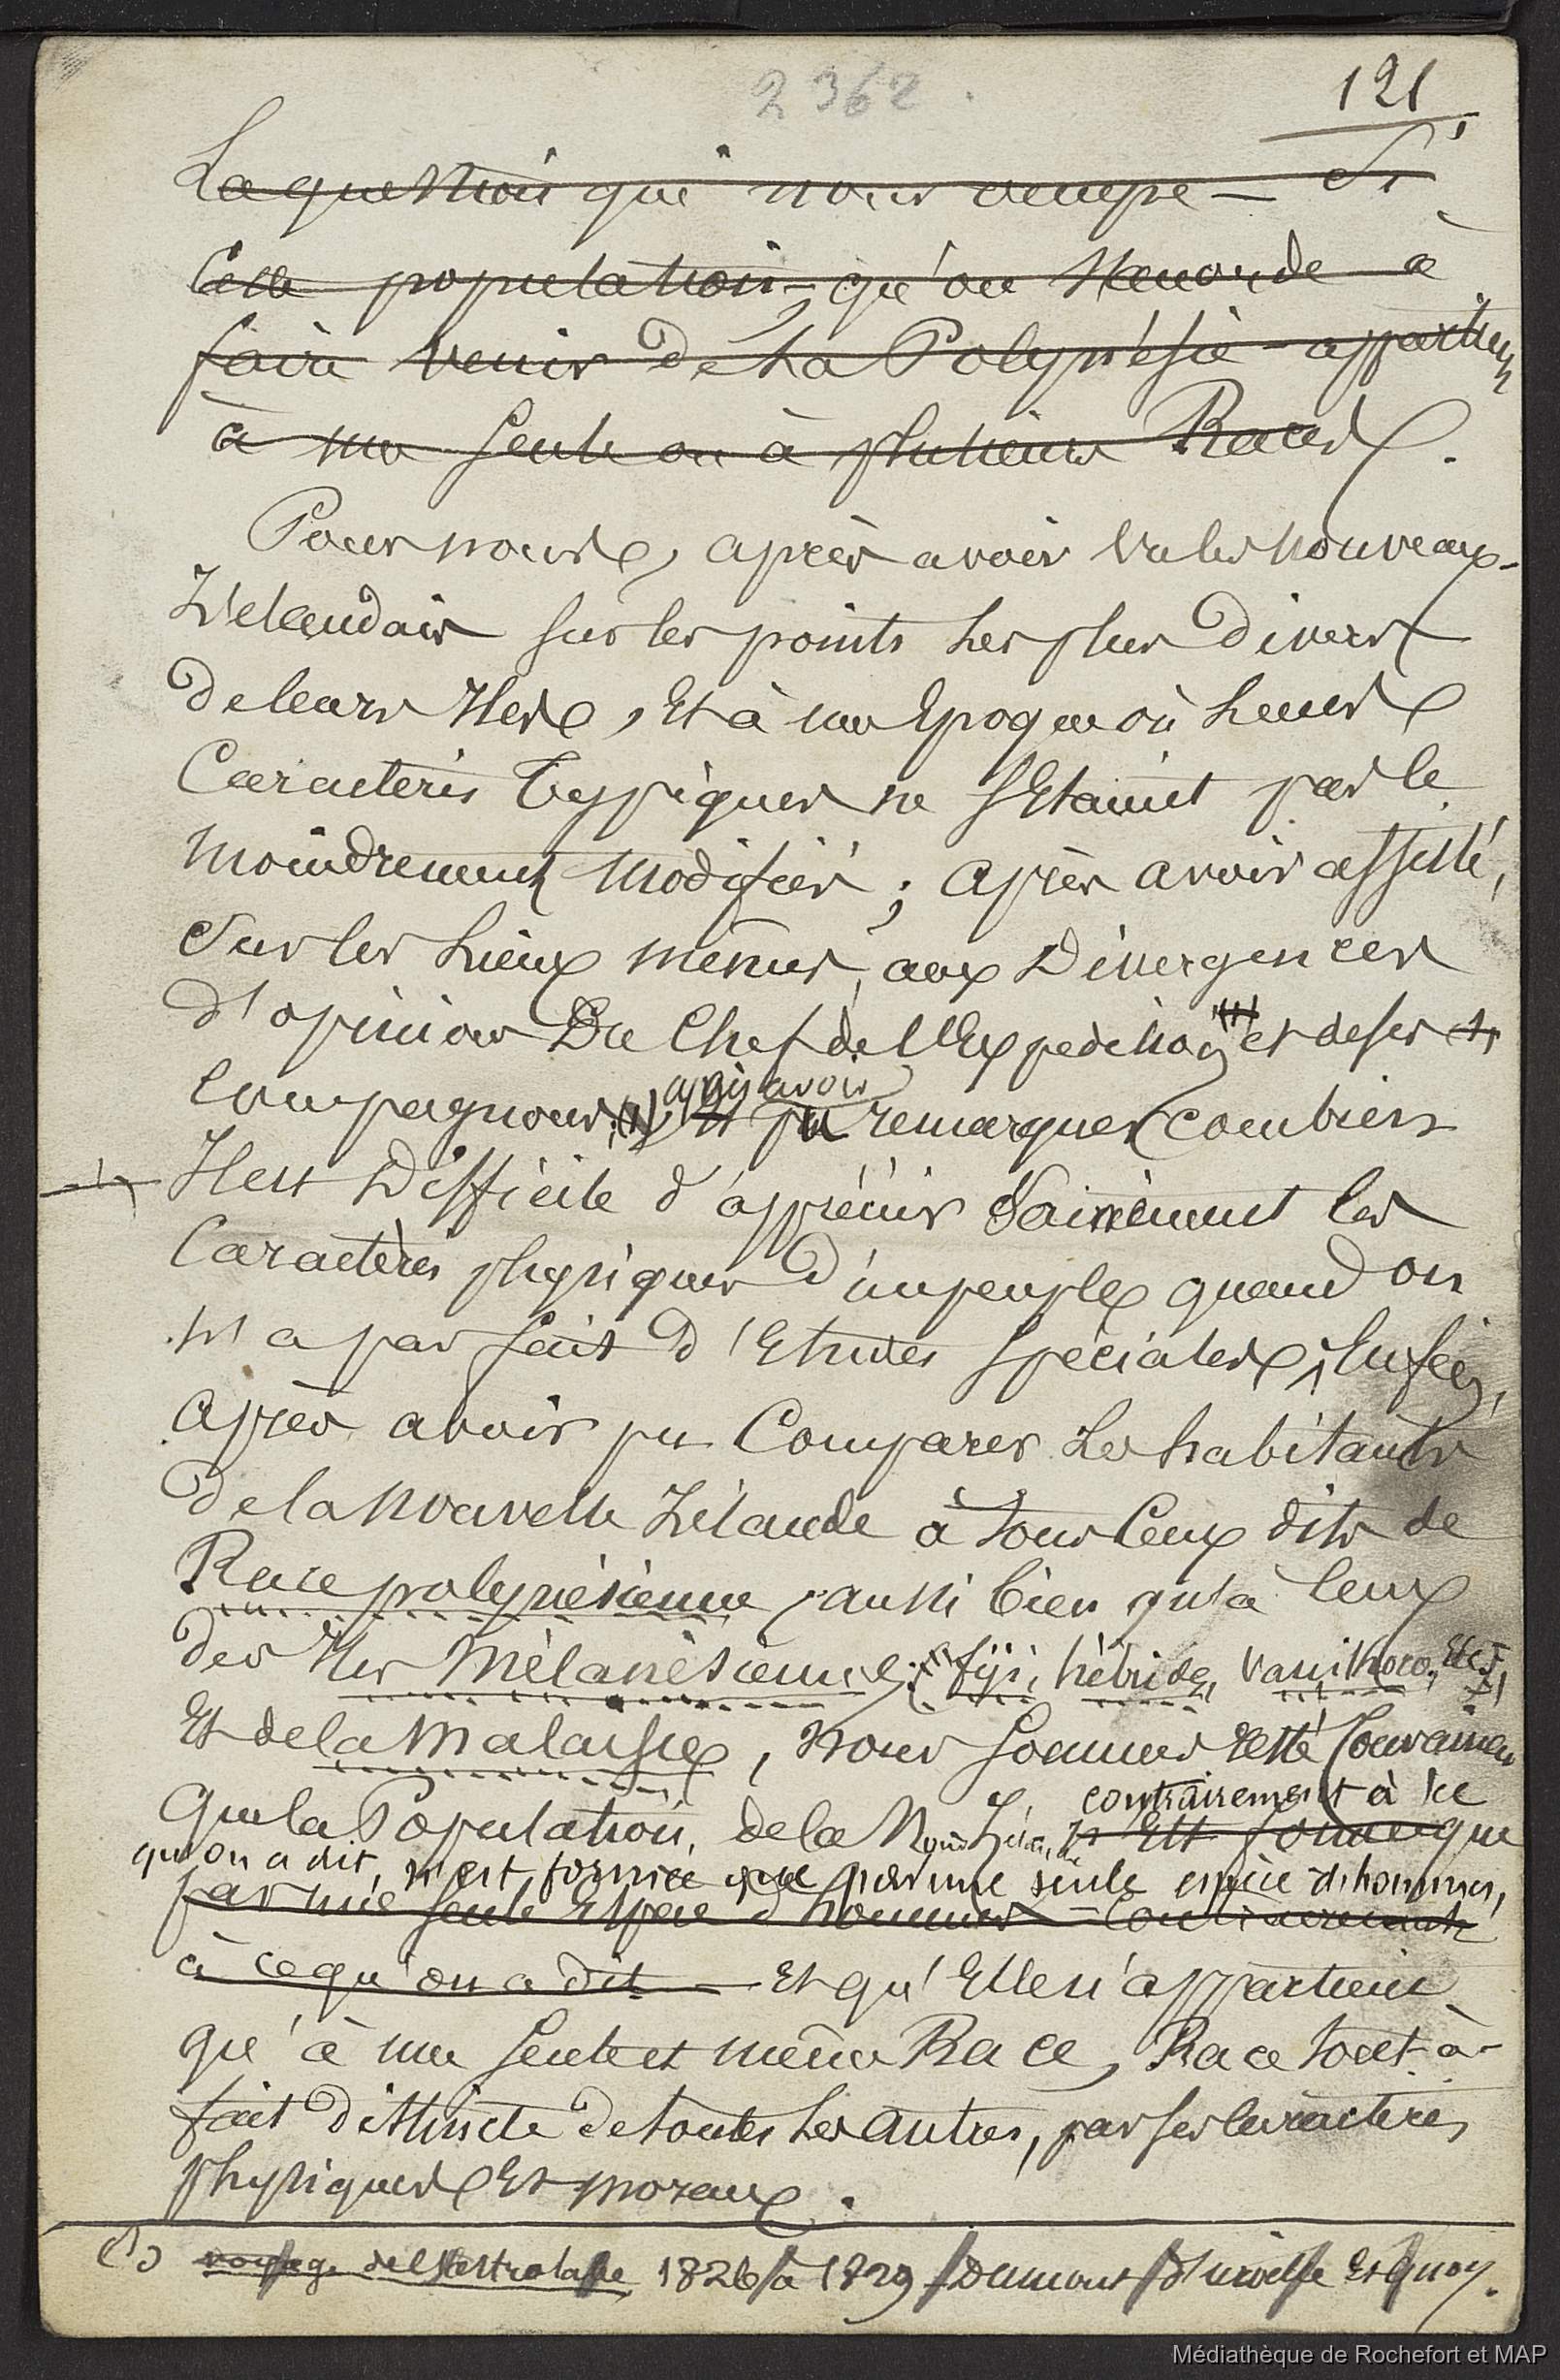 2362.
121
La question qui nous occupe — Si
Cette population, qu'on a
faire venir de la Polynésie appartien
à une seule ou à plusieurs Races.
Pour nous, après avoir vu les nouveaux-
Zélandais sur les points les plus divers
de leurs Iles, Et à une Epoque où leurs
Caractères typiques ne s'Etaient pas le
moindrement modifiés; après avoir assisté,
Sur les Lieux mêmes, aux Divergences
d'opinions Du Chef de l'Expédition (1) et de ses
Compagnons (1) après avoir pu remarquer combien
Il est Difficile d'apprécier Sainement les
Caractères physiques d'un peuple quand on
n'a pas fait d'Etudes spéciales; Enfin,
Après avoir pu Comparer Les habitants
de la nouvelle Zélande à tous Ceux dits de
Race polynésienne, aussi bien qu'à Ceux
des Iles Mélanésiennes; (fiji, hébrides, Vanikoro, Etc.),
Et de la Malaisie, nous sommes resté Convaincu
contrairement à ce
Que la Population de la Nouv. Zélande Est formée que
qu'on a dit, n'est formée que par une seule espèce d'hommes,
par une seule Espèce d'hommes — Contrairement
à ce qu'on a dit — Et qu'Elle n'appartient
qu'à une seule et même Race, Race tout-à-
fait distincte de toutes les autres, par ses caractères
physiques Et moraux.
(1) voyage de l'astrolabe 1826 à 1829 Dumont d'urville Et Quoy.
Médiathèque de Rochefort et MAP